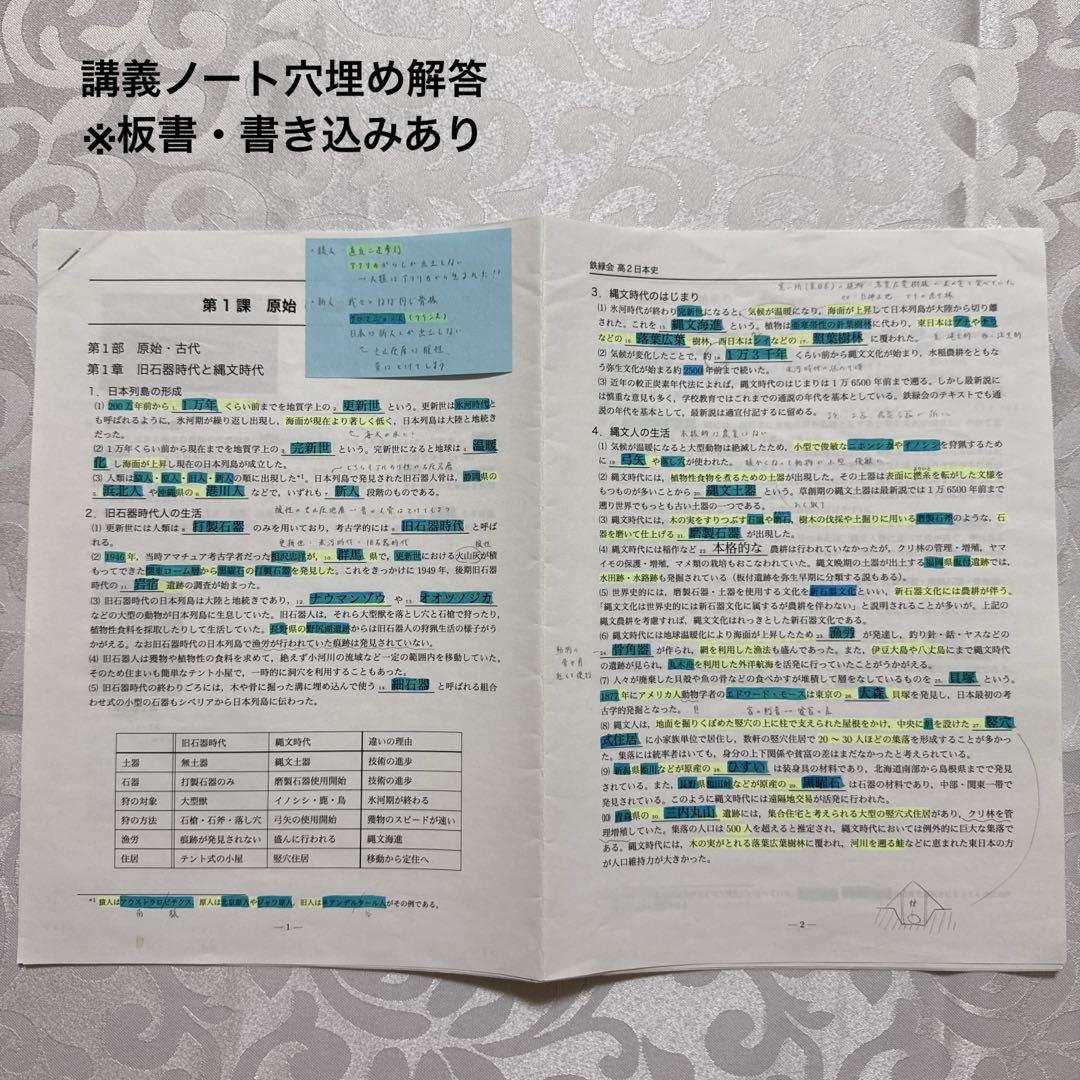 講義ノート穴埋め解答
※板書・書き込みあり
・猿人 - 直立二足歩行
アフリカからしか出土しない
→人類はアフリカから生まれた!?
・新人
クロマニョン人(フランス)
日本は新人しか出土しない
第1課 原始
第1部 原始・古代
第1章 旧石器時代と縄文時代
1.日本列島の形成
(1) 200万年前から 1. 1万年 くらい前までを地質学上の 2. 更新世 という。更新世は氷河時代と
も呼ばれるように、氷河期が繰り返し出現し、海面が現在より著しく低く、日本列島は大陸と地続き
だった。
(2) 1万年くらい前から現在までを地質学上の 3. 完新世 という。完新世になると地球は 4. 温暖
化 し海面が上昇し現在の日本列島が成立した。
(3) 人類は猿人・原人・旧人・新人の順に出現した*1。日本列島で発見された旧石器人骨は、静岡県の
5. 浜北人 や沖縄県の 6. 港川人 などで、いずれも 7. 新人 段階のものである。
2.旧石器時代人の生活
(1) 更新世には人類は 8. 打製石器 のみを用いており、考古学的には 9. 旧石器時代 と呼ば
れる。
(2) 1946年、当時アマチュア考古学者だった相沢忠洋が、10. 群馬 県で、更新世における火山灰が積
もってできた関東ローム層から黒曜石の打製石器を発見した。これをきっかけに1949年、後期旧石器
時代の 11. 岩宿 遺跡の調査が始まった。
(3) 旧石器時代の日本列島は大陸と地続きであり、12. ナウマンゾウ や 13. オオツノジカ
などの大型の動物が日本列島に生息していた。旧石器人は、それら大型獣を落とし穴と石槍で狩ったり、
植物性食料を採取したりして生活していた。長野県の野尻湖遺跡からは旧石器人の狩猟生活の様子がう
かがえる。なお旧石器時代の日本列島で漁労が行われていた痕跡は発見されていない。
(4) 旧石器人は獲物や植物性の食料を求めて、絶えず小河川の流域など一定の範囲内を移動していた。
そのため住まいも簡単なテント式の小屋で、一時的に洞穴を利用することもあった。
(5) 旧石器時代の終わりごろには、木や骨に掘った溝に埋め込んで使う 14. 細石器 と呼ばれる組合
わせ式の小型の石器もシベリアから日本列島に伝わった。
旧石器時代 縄文時代 違いの理由
土器 無土器 縄文土器 技術の進歩
石器 打製石器のみ 磨製石器使用開始 技術の進歩
狩の対象 大型獣 イノシシ・鹿・鳥 氷河期が終わる
狩の方法 石槍・石斧・落し穴 弓矢の使用開始 獲物のスピードが速い
漁労 痕跡が発見されない 盛んに行われる 縄文海進
住居 テント式の小屋 竪穴住居 移動から定住へ
*1 猿人はアウストラロピテクス、原人は北京原人やジャワ原人、旧人はネアンデルタール人がその例である。
— 1 —
鉄緑会 高2日本史
3.縄文時代のはじまり
(1) 氷河時代が終わり完新世になると、気候が温暖になり、海面が上昇して日本列島が大陸から切り離
された。これを 15. 縄文海進 という。植物は亜寒帯性の針葉樹林に代わり、東日本はブナやナラ
などの 16. 落葉広葉 樹林、西日本はシイなどの 17. 照葉樹林 に覆われた。
(2) 気候が変化したことで、約 18. 1万3千年 くらい前から縄文文化が始まり、水稲農耕をともな
う弥生文化が始まる約2500年前まで続いた。
(3) 近年の較正炭素年代法によれば、縄文時代のはじまりは1万6500年前まで遡る。しかし最新説に
は慎重な意見も多く、学校教育ではこれまでの通説の年代を基本としている。鉄緑会のテキストでも通
説の年代を基本として、最新説は適宜付記するに留める。
4.縄文人の生活
(1) 気候が温暖になると大型動物は絶滅したため、小型で俊敏なニホンシカやイノシシを狩猟するため
に 19. 弓矢 や落し穴が使われた。
(2) 縄文時代には、植物性食物を煮るための土器が出現した。その土器は表面に撚糸を転がした文様を
もつものが多いことから 20. 縄文土器 という。草創期の縄文土器は最新説では1万6500年前まで
遡り世界でもっとも古い土器の一つである。
(3) 縄文時代には、木の実をすりつぶす石皿や磨石、樹木の伐採や土掘りに用いる磨製石斧のような、石
器を磨いて仕上げる 21. 磨製石器 が出現した。
(4) 縄文時代には稲作など 22. 本格的な 農耕は行われていなかったが、クリ林の管理・増殖、ヤマ
イモの保護・増殖、マメ類の栽培もおこなわれていた。縄文晩期の土器が出土する福岡県板付遺跡では、
水田跡・水路跡も発掘されている(板付遺跡を弥生早期に分類する説もある)。
(5) 世界史的には、磨製石器・土器を使用する文化を新石器文化といい、新石器文化には農耕が伴う。
「縄文文化は世界史的には新石器文化に属するが農耕を伴わない」と説明されることが多いが、上記の
縄文農耕を考慮すれば、縄文文化はれっきとした新石器文化である。
(6) 縄文時代には地球温暖化により海面が上昇したため 23. 漁労 が発達し、釣り針・銛・ヤスなどの
24. 骨角器 が作られ、網を利用した漁法も盛んであった。また、伊豆大島や八丈島にまで縄文時代
の遺跡が見られ、丸木舟を利用した外洋航海を活発に行っていたことがうかがえる。
(7) 人々が廃棄した貝殻や魚の骨などの食べかすが堆積して層をなしているものを 25. 貝塚 という。
1877年にアメリカ人動物学者のエドワード・モースは東京の 26. 大森 貝塚を発見し、日本最初の考
古学的発掘となった。
(8) 縄文人は、地面を掘りくぼめた竪穴の上に柱で支えられた屋根をかけ、中央に炉を設けた 27. 竪穴
式住居 に小家族単位で居住し、数軒の竪穴住居で20～30人ほどの集落を形成することが多かっ
た。集落には統率者はいても、身分の上下関係や貧富の差はまだなかったと考えられている。
(9) 新潟県姫川などが原産の 28. ひすい は装身具の材料であり、北海道南部から島根県までで発見
されている。また、長野県和田峠などが原産の 29. 黒曜石 は石器の材料であり、中部・関東一帯で
発見されている。このように縄文時代には遠隔地交易が活発に行われた。
(10) 青森県の 30. 三内丸山 遺跡には、集合住宅と考えられる大型の竪穴式住居があり、クリ林を管
理増殖していた。集落の人口は500人を超えると推定され、縄文時代においては例外的に巨大な集落で
ある。縄文時代には、木の実がとれる落葉広葉樹林に覆われ、河川を遡る鮭などに恵まれた東日本の方
が人口維持力が大きかった。
— 2 —